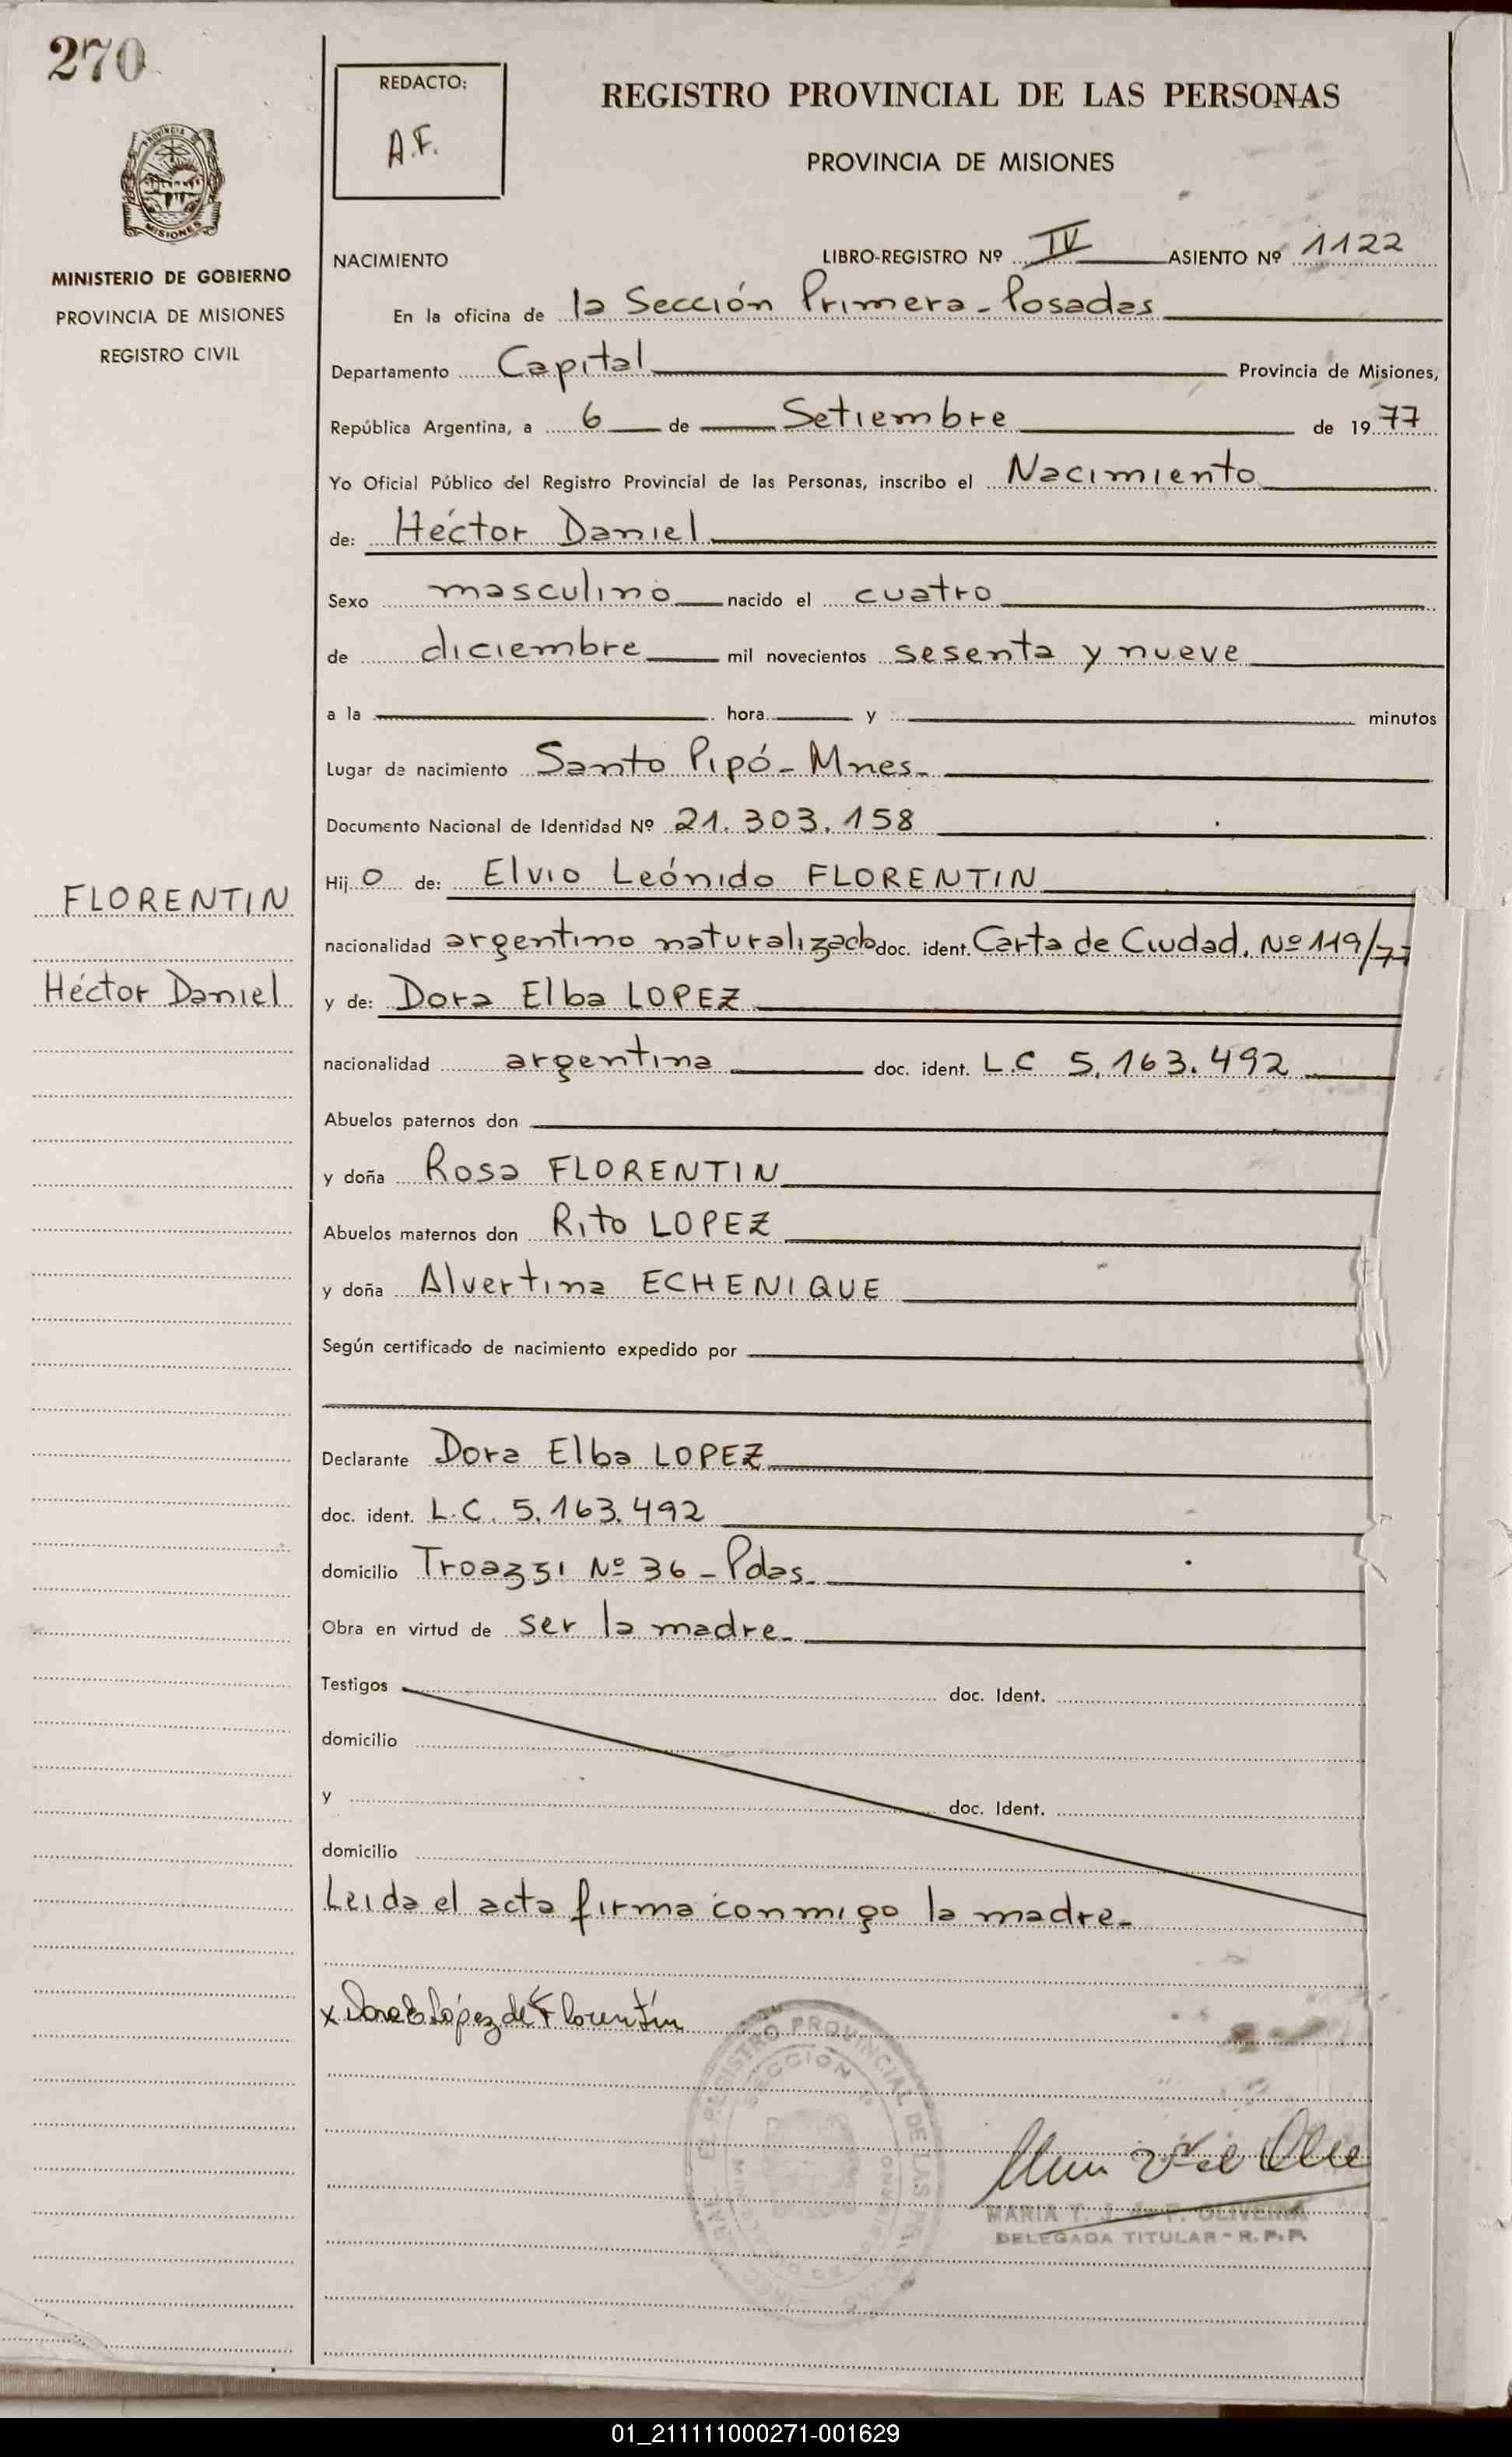 270
REDACTO:
A.F.
REGISTRO PROVINCIAL DE LAS PERSONAS
PROVINCIA DE MISIONES
PROVINCIA DE
MISIONES
MINISTERIO DE GOBIERNO
PROVINCIA DE MISIONES
REGISTRO CIVIL
NACIMIENTO LIBRO-REGISTRO Nº IV ASIENTO Nº 1122
En la oficina de la Sección Primera - Posadas
Departamento Capital Provincia de Misiones,
República Argentina, a 6 de Setiembre de 1977
Yo Oficial Público del Registro Provincial de las Personas, inscribo el Nacimiento
de: Héctor Daniel
Sexo masculino nacido el cuatro
de diciembre mil novecientos sesenta y nueve
a la hora y minutos
Lugar de nacimiento Santo Pipó - Mnes.
Documento Nacional de Identidad Nº 21.303.158
Hijo de: Elvio Leónido FLORENTIN
FLORENTIN
nacionalidad argentino naturalizado doc. ident. Carta de Ciudad. Nº 119/77
Héctor Daniel
y de: Dora Elba LOPEZ
nacionalidad argentina doc. ident. L.C 5.163.492
Abuelos paternos don
y doña Rosa FLORENTIN
Abuelos maternos don Rito LOPEZ
y doña Alvertina ECHENIQUE
Según certificado de nacimiento expedido por
Declarante Dora Elba LOPEZ
doc. ident. L.C. 5.163.492
domicilio Troazzi Nº 36 - Pdas.
Obra en virtud de ser la madre.
Testigos doc. Ident.
domicilio
y doc. Ident.
domicilio
Leida el acta firma conmigo la madre.
x Dora E López de Florentín
REGISTRO PROVINCIAL DE LAS
SECCION 1ª
MARIA T. J. de P. OLIVEIRA
DELEGADA TITULAR - R.P.P.
01_211111000271-001629